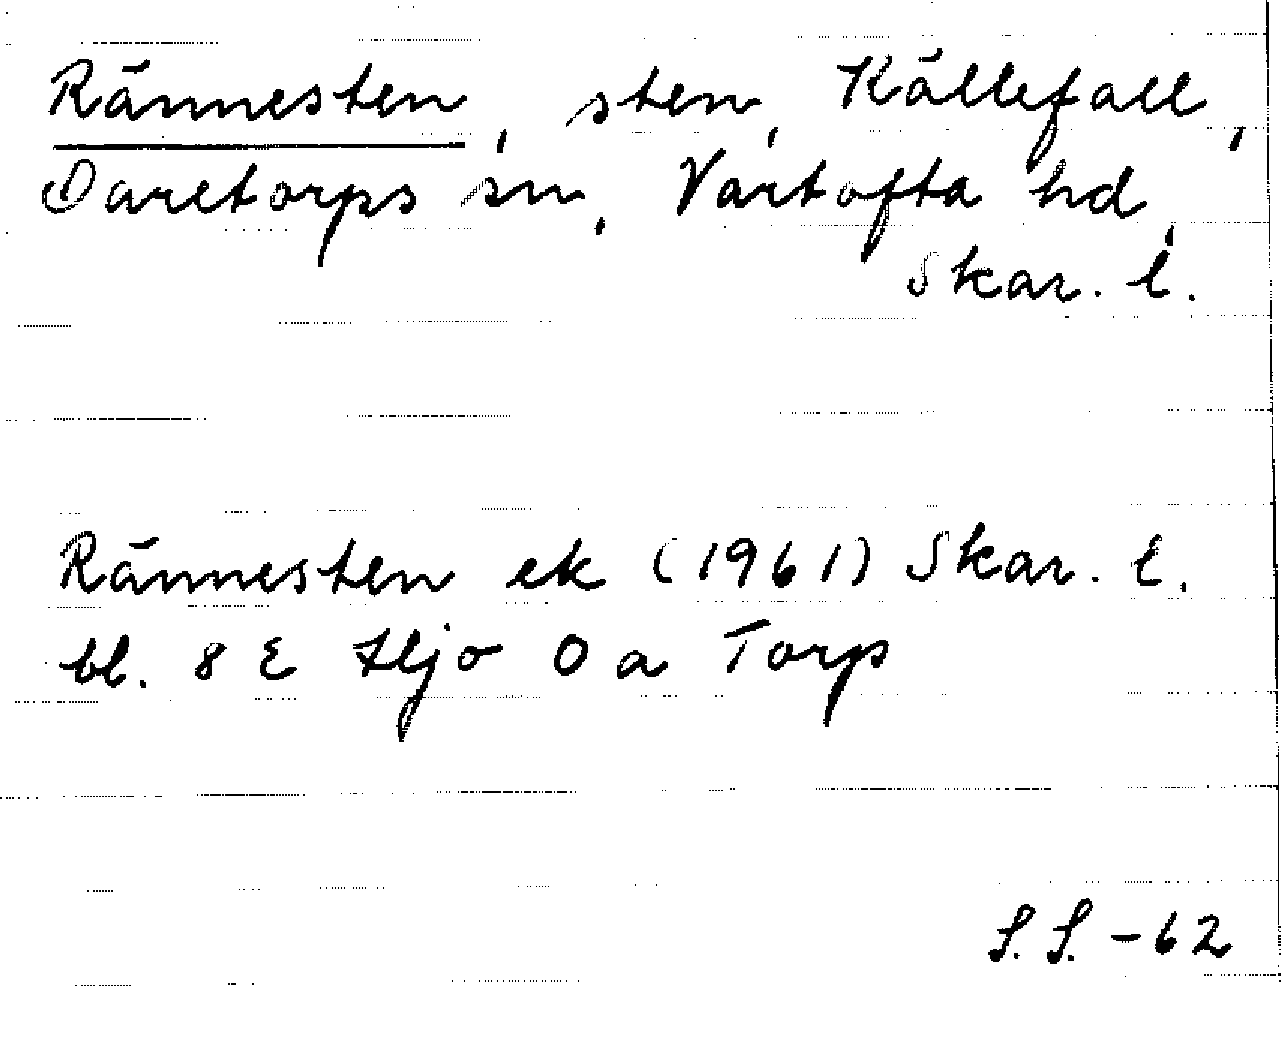 Rännesten, sten, Källefall,
Daretorps sn, Vartofta hd,
Skar. l.
Rännesten ek (1961) Skar. l.
bl. 8 E Hjo 0 a Torp
S.S. -62